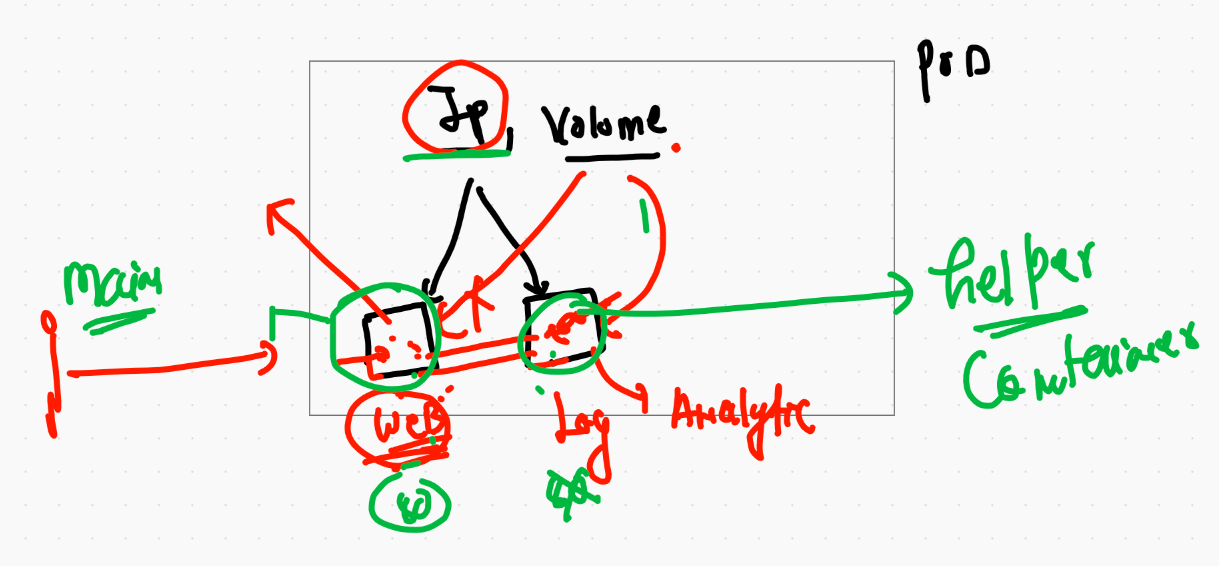 POD
Ip
Volume
Main
helper
Container
WeB
Log
Analytic